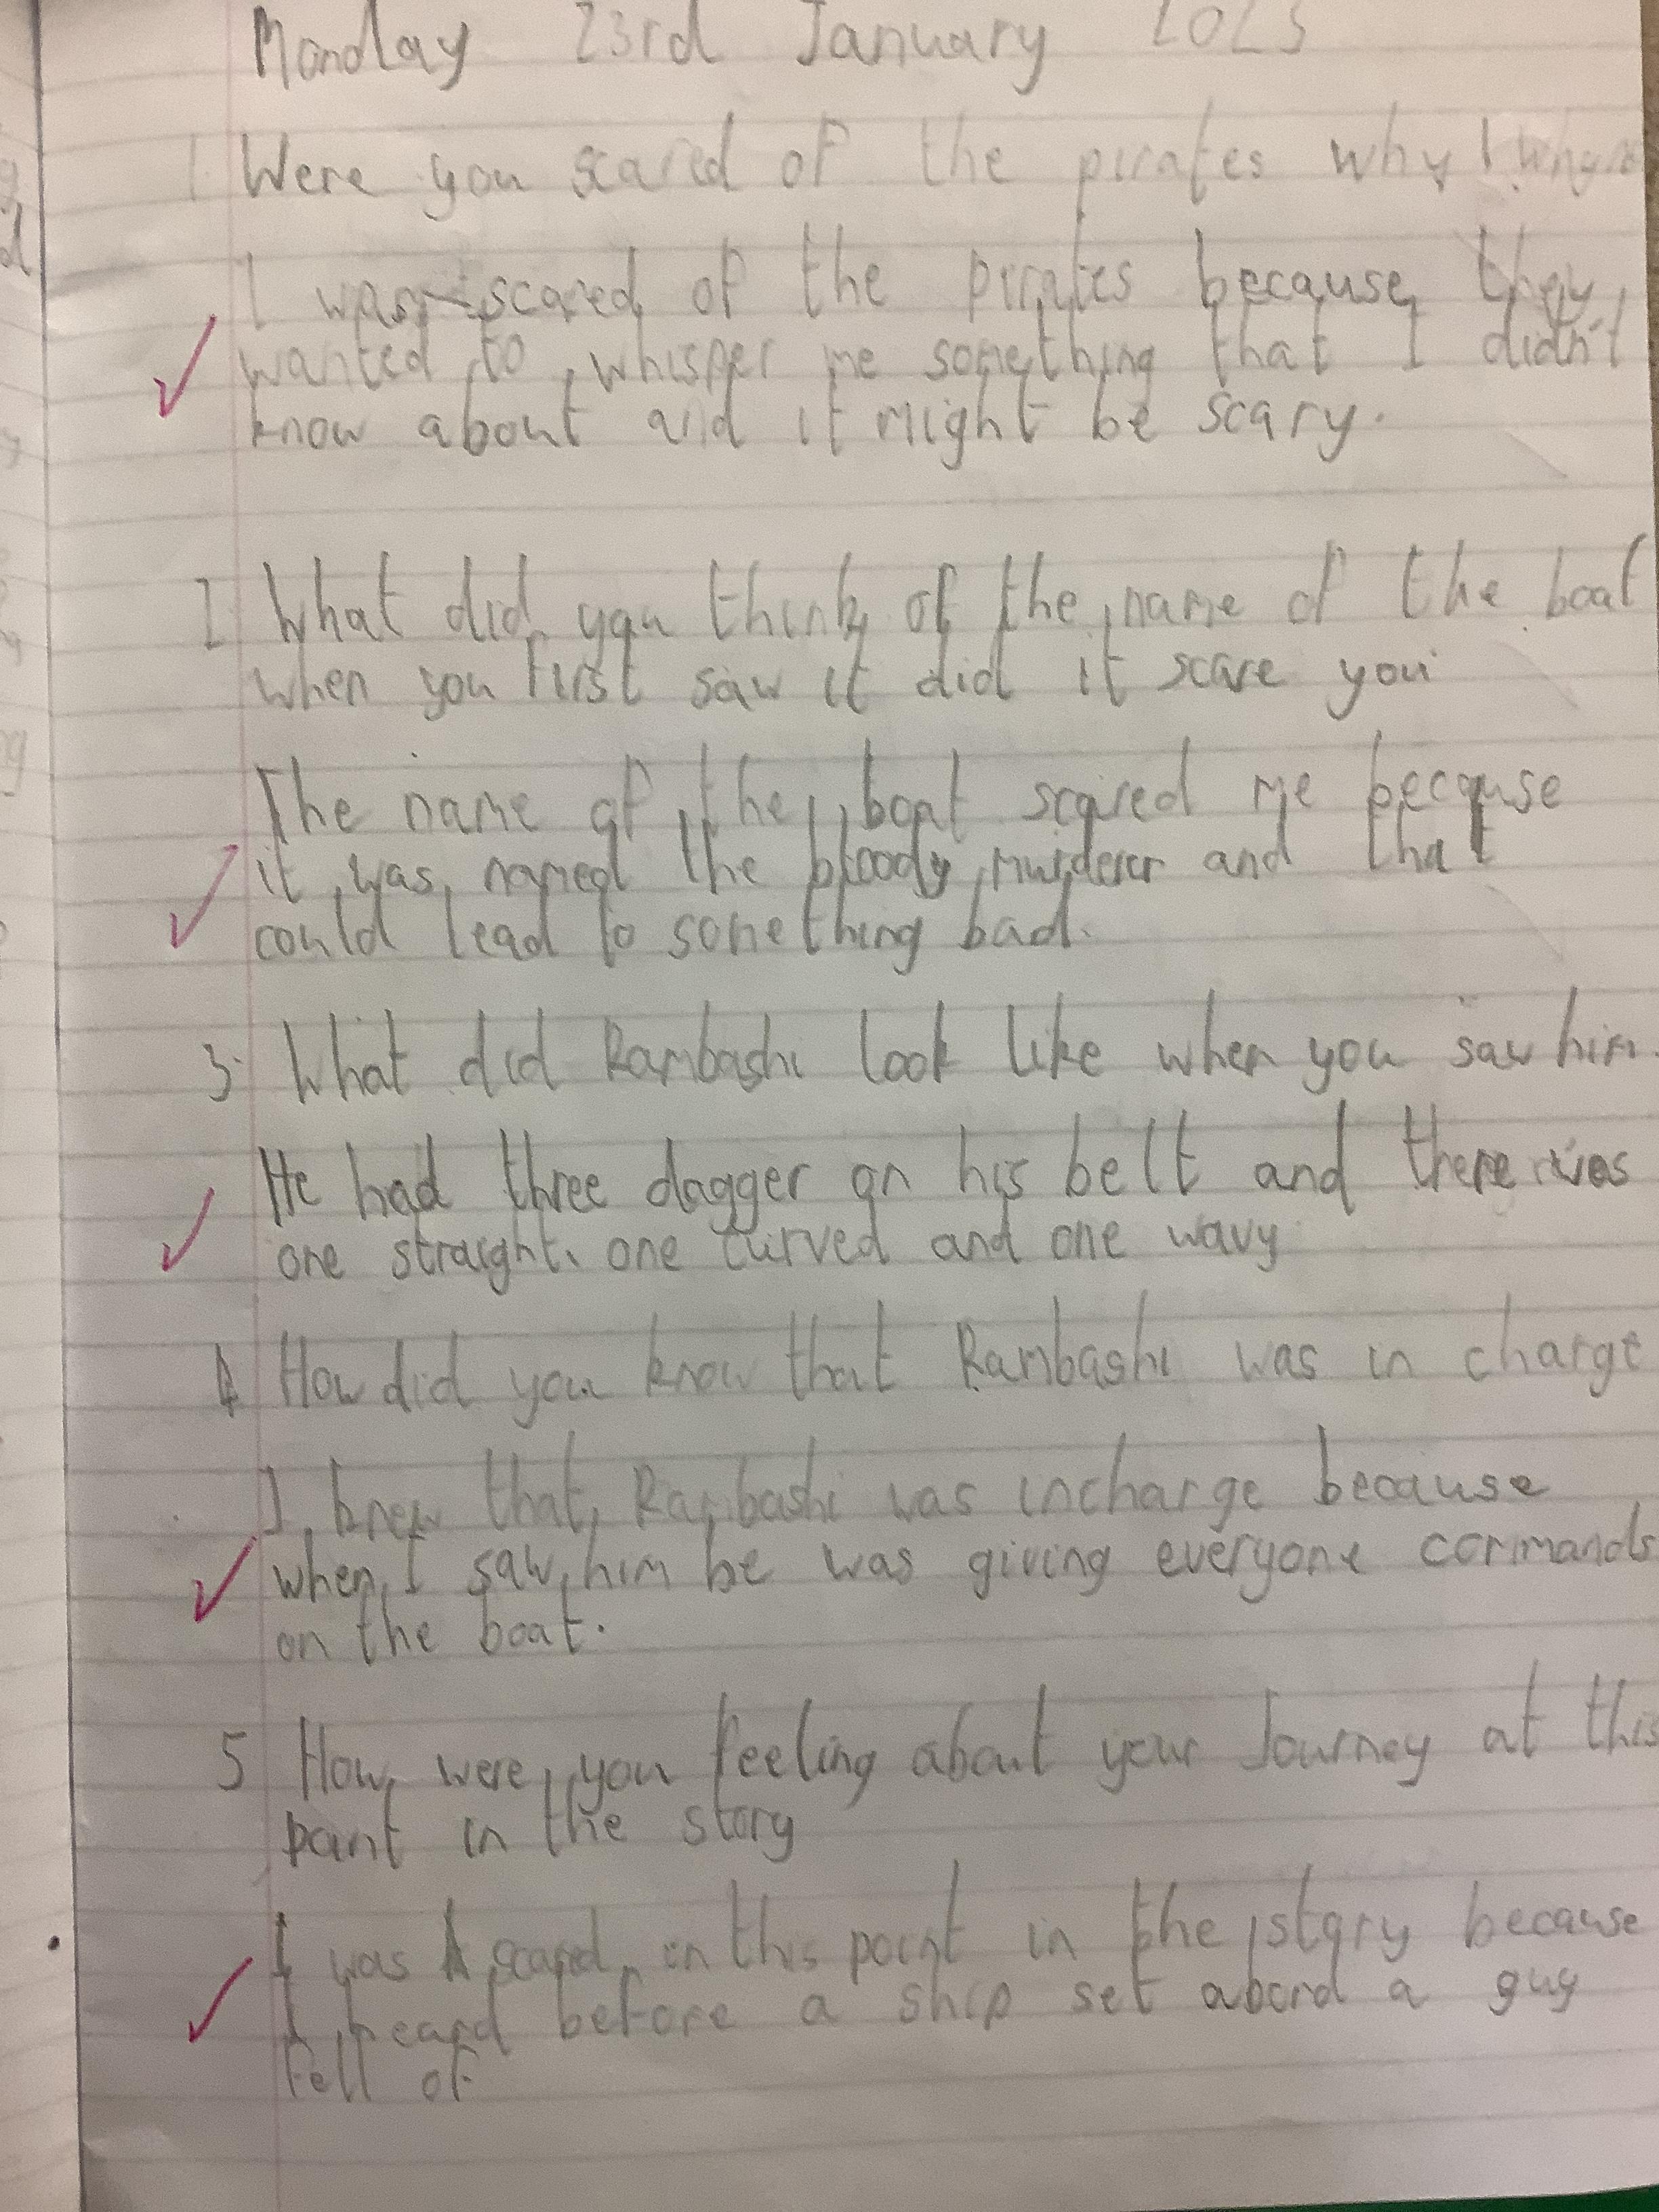 Monday 23rd January 2023
1 Were you scared of the pirates why / why n
I was scared of the pirates because they
wanted to whisper me something that I didn't
know about and it might be scary.
2 What did you think of the name of the boat
when you first saw it did it scare you
The name of the boat scared me because
it was named the bloody murderer and that
could lead to something bad.
3. What did Rambashi look like when you saw him.
He had three dagger on his belt and there was
one straight, one curved and one wavy
4 How did you know that Rambashi was in charge
I knew that Rambashi was incharge because
when I saw him he was giving everyone commands
on the boat.
5 How were you feeling about your Journey at this
point in the story
I was scared in this point in the story because
I heard before a ship set abord a guy
fell of